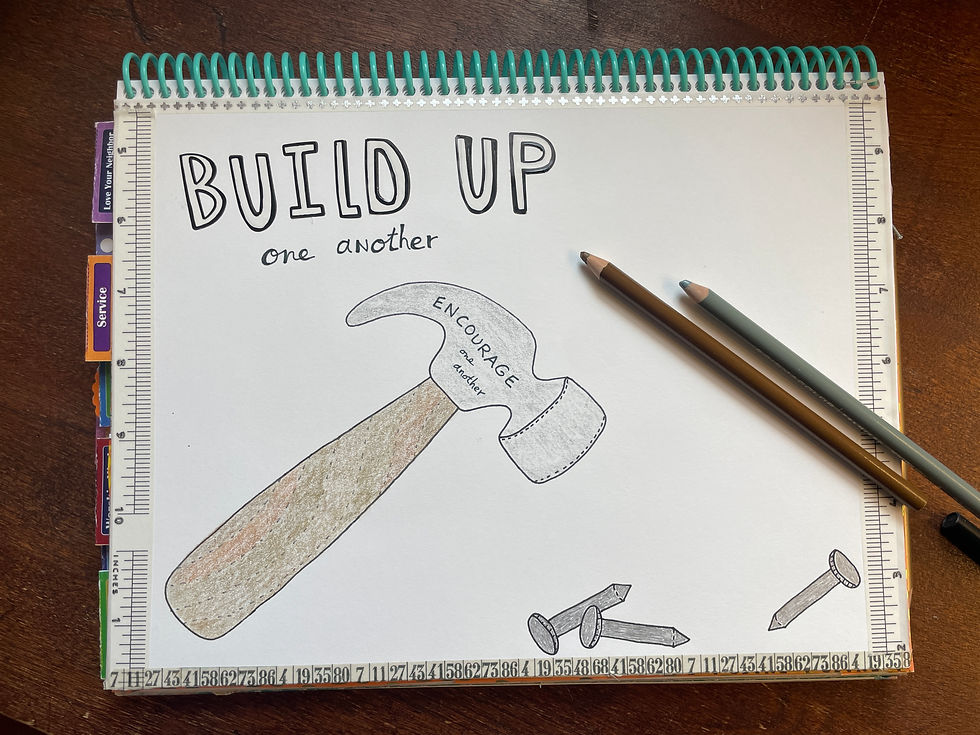 BUILD UP
one another
ENCOURAGE
one
another
Love Your Neighbor
Service
5
6
7
8
9
10
INCHES
1
7 11 27 43 41 58 62 73 86 4 19 35 80 7 11 27 43 41 58 62 73 86 4 19 35 48 68 41 58 62 80 7 11 27 43 41 58 62 73 86 4 19 35 8